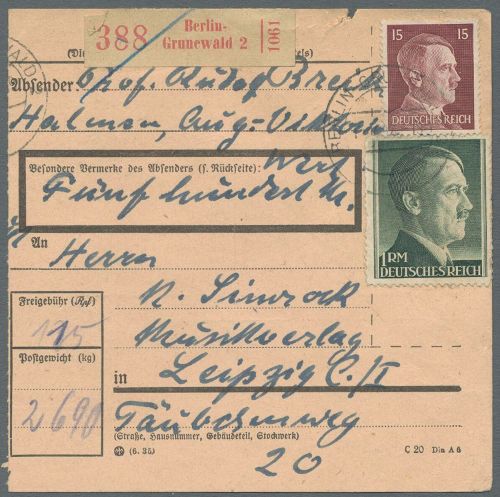 388
Berlin-
Grunewald 2
1061
15 15
DEUTSCHES REICH
Absender: Prof. Rudolf
Halensee, Aug-Viktoria
Besondere Vermerke des Absenders (s. Rückseite): Wert
Fünfhundert M.
1 RM
DEUTSCHES REICH
An Herrn
N. Simrock
Musikverlag
in Leipzig C./I
Täubchenweg
(Straße, Hausnummer, Gebäudeteil, Stockwerk)
20
Freigebühr (Rpf)
115
Postgewicht (kg)
2 690
(6. 35)
C 20 Din A 6